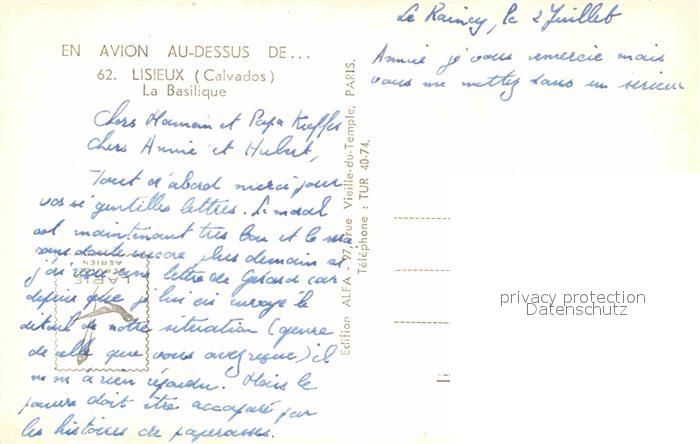 EN AVION AU-DESSUS DE...
62. LISIEUX (Calvados)
La Basilique
Chers Maman et Papa Kieffer
chers Annie et Hubert,
Tout d'abord merci pour
vos si gentilles lettres. Le moral
est maintenant très bon et le sera
sans doute encore plus demain
j'ai reçu une lettre de Gérard car
depuis que je lui ai envoyé le
détail de notre situation (genre
de celle que vous avez reçue) il
ne m'a rien répondu. Mais le
pauvre doit être accaparé par
les histoires de paperasses.
LAPIE
SERVICE
AERIEN
Edition ALFA - 97, rue Vieille-du-Temple, PARIS.
Téléphone : TUR 40-74.
Le Raincy, le 2 Juillet
Annie je vous remercie mais
vous me mettez dans un sérieux
privacy protection
Datenschutz